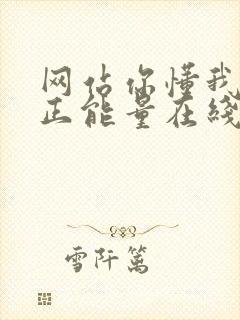 网佔你懂我
正能量在线
雪阡篱